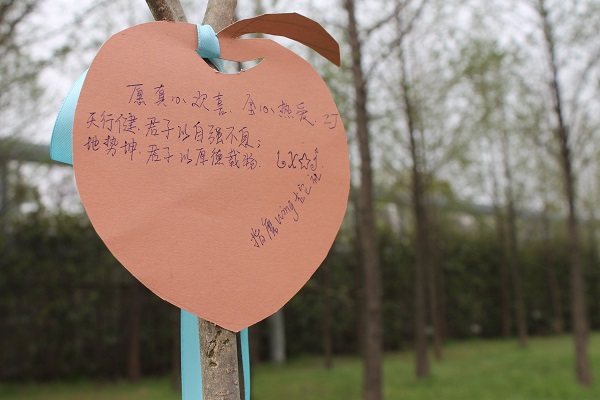 愿真心欢喜.全心热爱
天行健.君子以自强不息;
地势坤.君子以厚德载物. LX☆